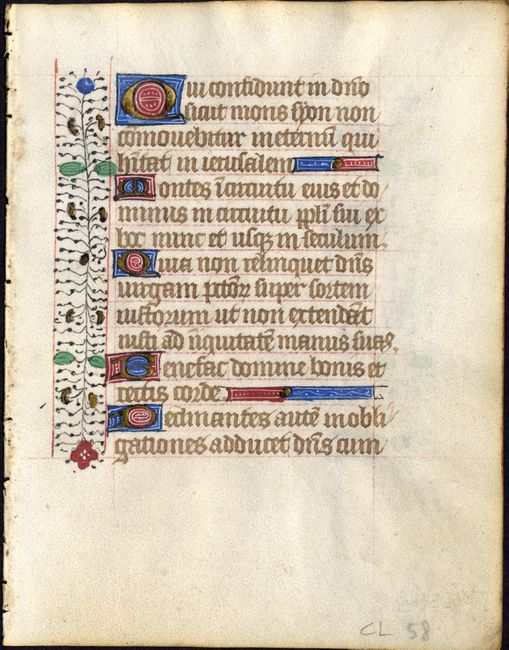 Qui confidunt in dño
sicut mons syon non
cōmovebitur in eternū qui
hītat in ierusalem
Montes ī circuitu eius et do
minus in circuitu ppłi sui ex
hoc nunc et usqȝ in seculum.
Quia non relinquet dñs
virgam pctoȝ super sortem
iustorum ut non extendāt
iusti ad iniquitatē manus suas.
Benefac domine bonis et
rectis corde
Declinantes autē in obli
gationes adducet dñs cum
CL 58